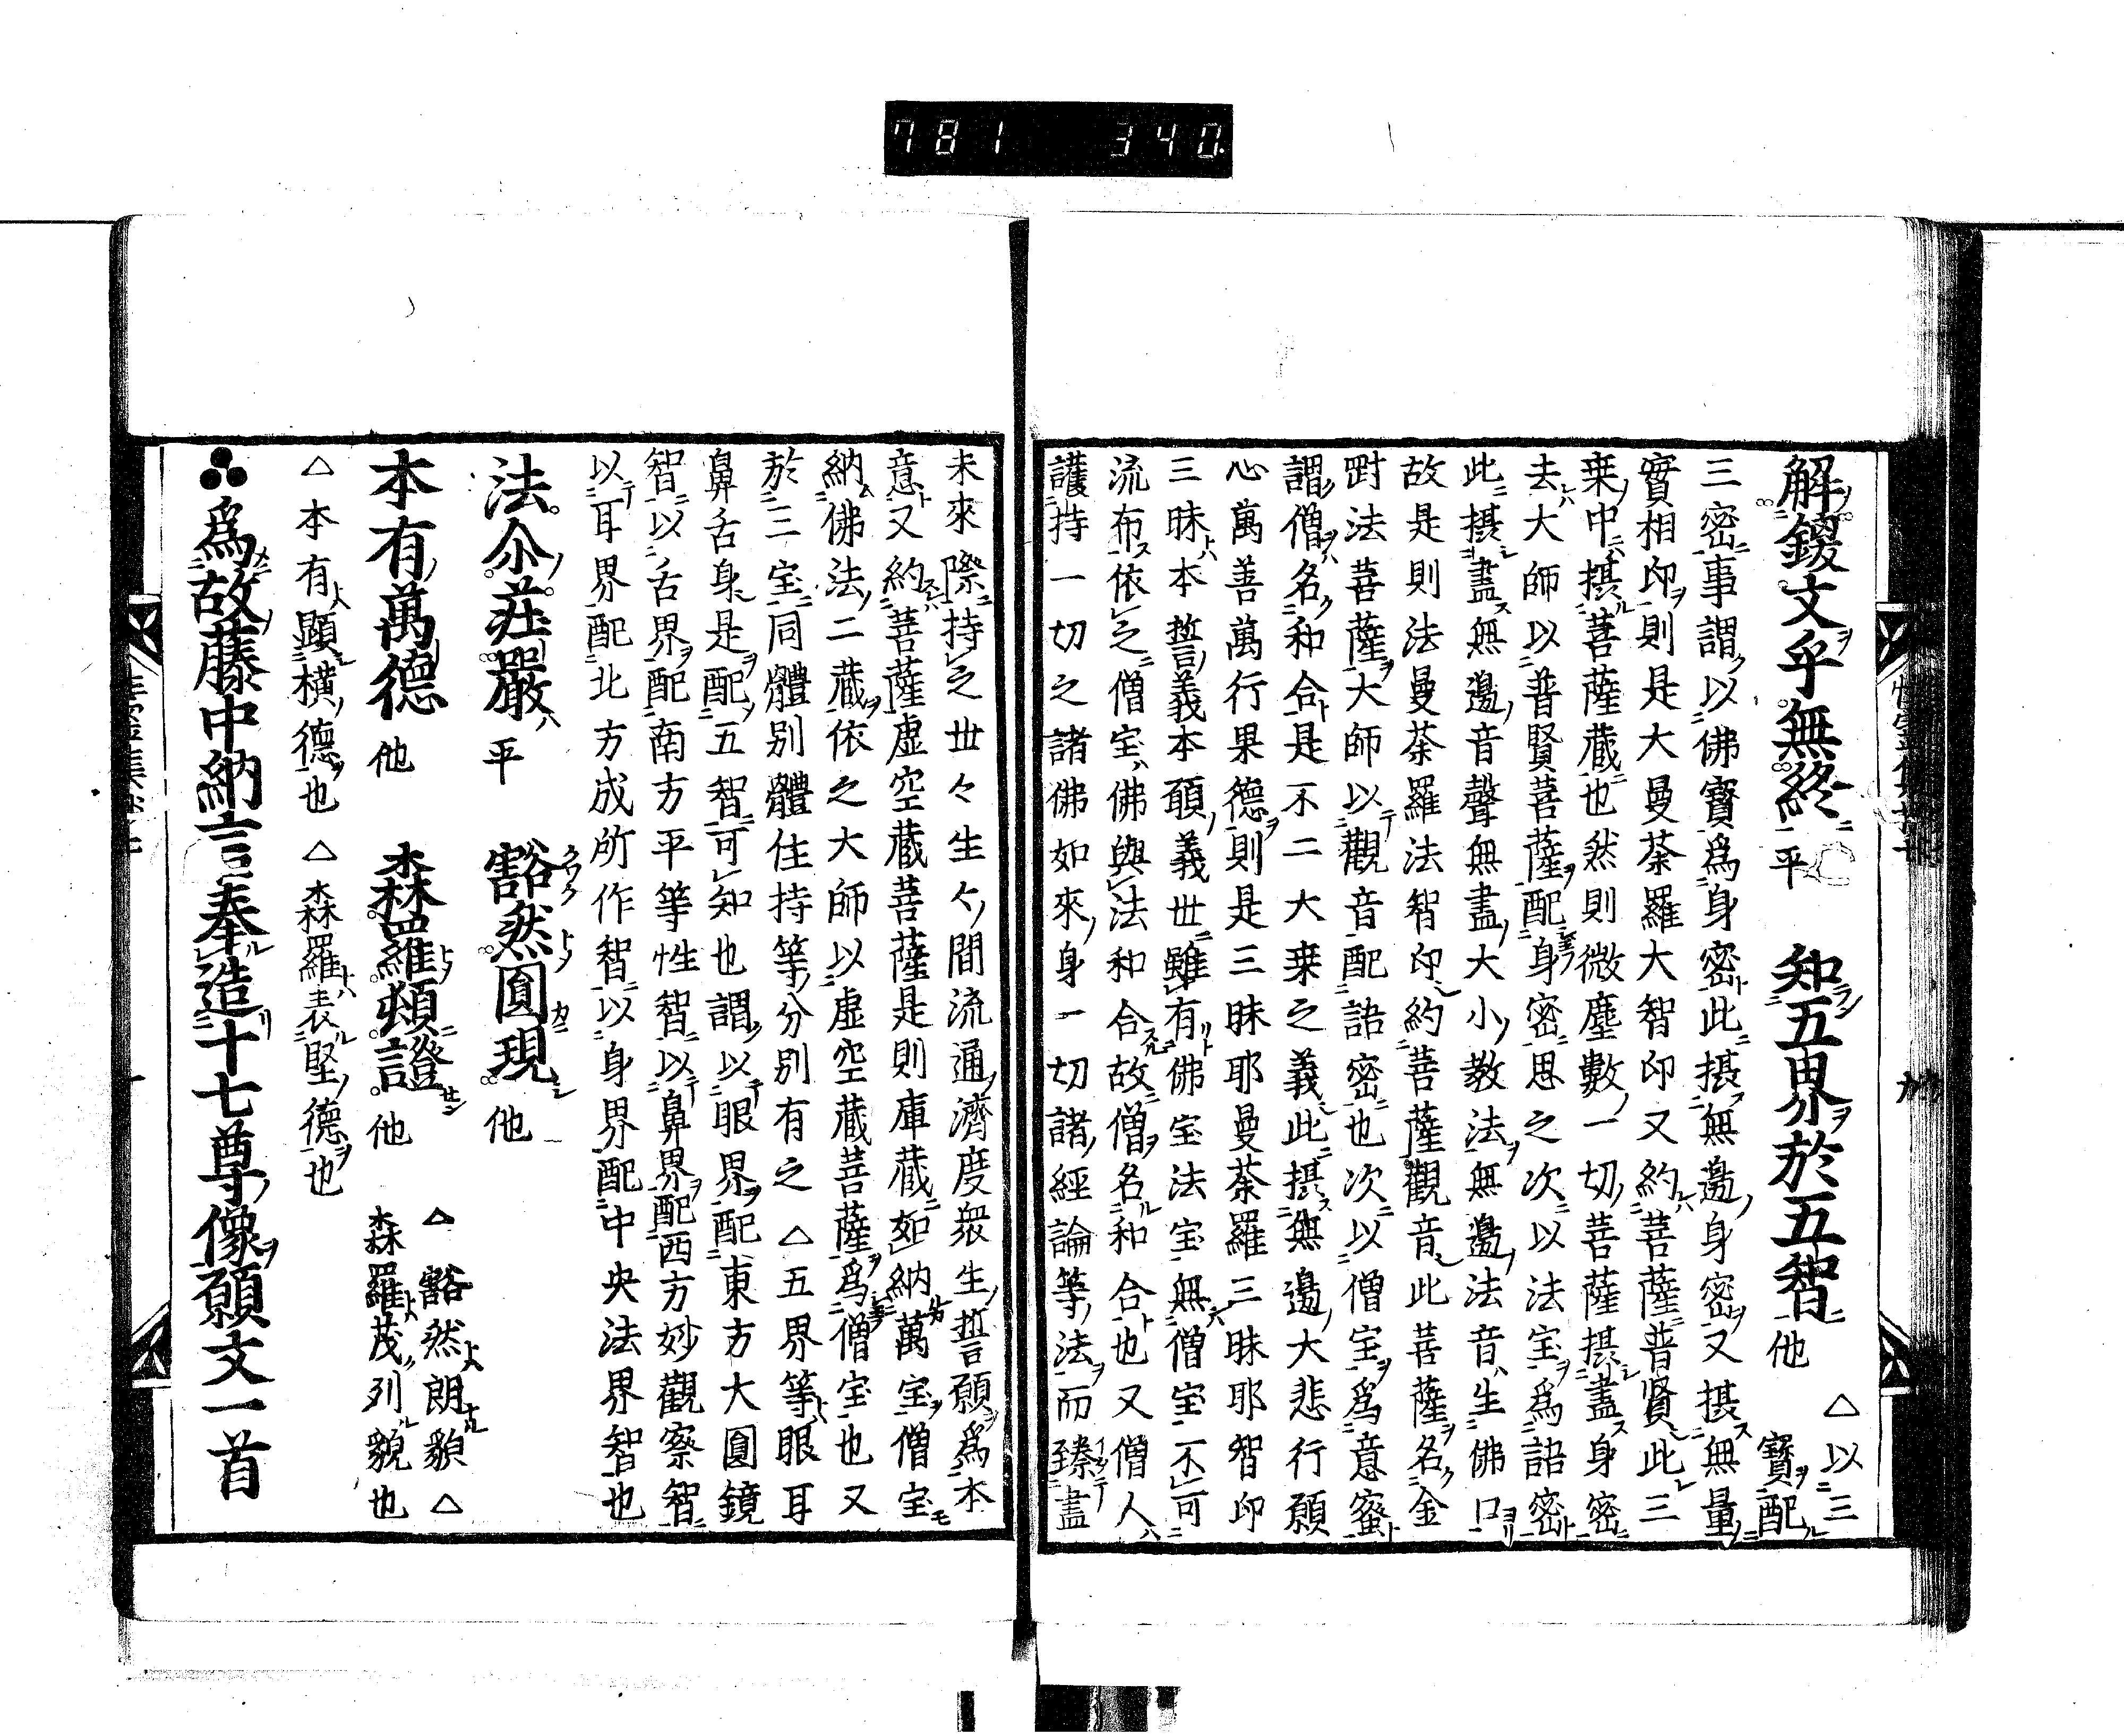 781 340
解鑁文乎無終 平 知五界於五智 他 △以三
寶配
三密事謂以佛寳為身密此摂無邉身密又摂無量
實相印則是大曼荼羅大智印又約菩薩普贤此三
乗中摂菩薩蔵也然則微塵數一切菩薩摂盡身密
去大師以普賢菩薩配身密思之次以法宝為語密
此摂盡無邉音聲無盡大小教法無邉法音生佛口
故是則法曼荼羅法智印約菩薩觀音此菩薩名金
對法菩薩大師以觀音配語密也次以僧宝為意蜜
謂僧名和合是不二大乗之義此摂無邉大悲行願
心萬善萬行果德則是三昧耶曼荼羅三昧耶智印
三昧本誓義本願義世雖有佛宝法宝無僧宝不可
流布依之僧宝佛與法和合故僧名和合也又僧人
護持一切之諸佛如來身一切諸經論等法而臻盡
未來際持之世々生々間流通濟度衆生誓願為本
意又約菩薩虚空蔵菩薩是則庫蔵如納萬宝僧宝
納佛法二蔵依之大師以虚空蔵菩薩為僧宝也又
於三宝同體別體住持等分別有之 △五界等眼耳
鼻舌身是配五智可知也謂以眼界配東方大圓鏡
智以舌界配南方平等性智以鼻界配西方妙觀察智
以耳界配北方成所作智以身界配中央法界智也
法尒莊嚴 平 豁然圓現 他
本有萬德 他 森羅頓證 他 △豁然朗貌△
森羅茂列貌也
△本有顕横德也 △森羅表堅德也
為故藤中納言奉造十七尊像願文一首